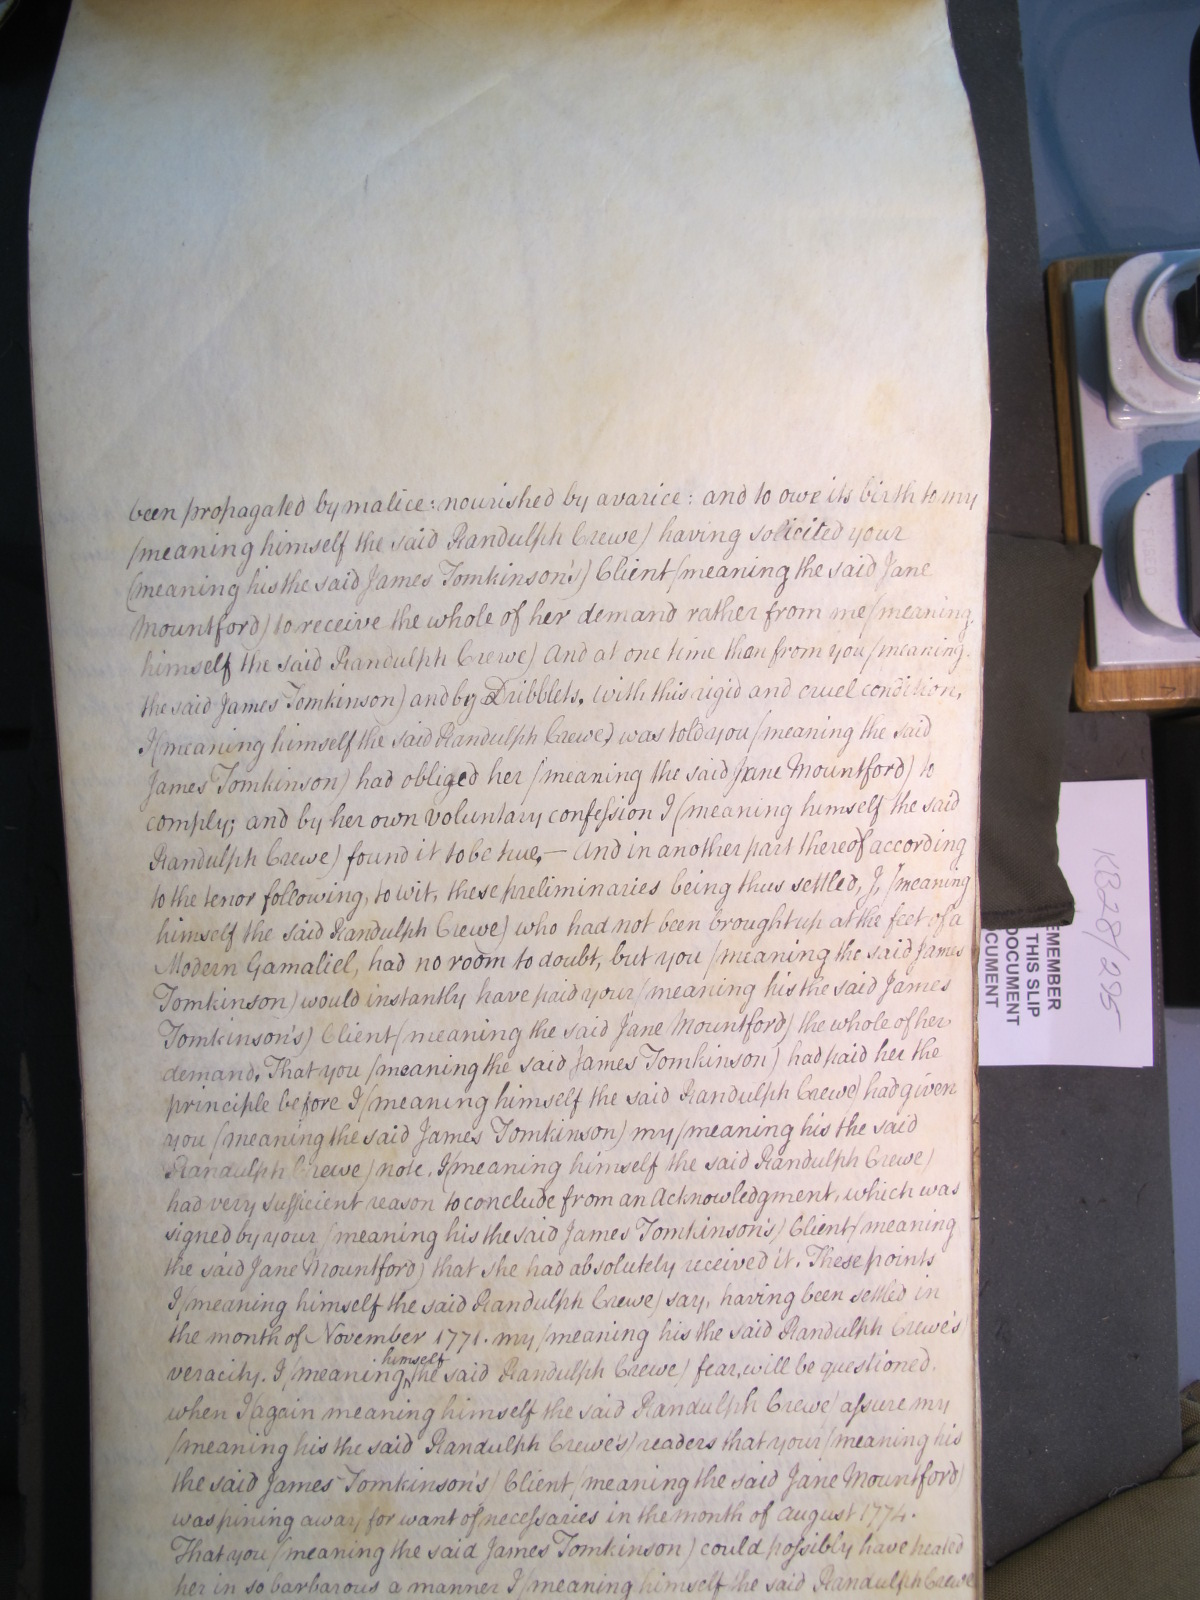 been propagated by malice: nourished by avarice: and to owe its birth to my
(meaning himself the said Randulph Crewe) having solicited your
(meaning his the said James Tomkinson's) Client (meaning the said Jane
Mountford) to receive the whole of her demand rather from me (meaning
himself the said Randulph Crewe) And at one time than from you (meaning
the said James Tomkinson) and by Dribblets, with this rigid and cruel condition,
I (meaning himself the said Randulph Crewe) was told you (meaning the said
James Tomkinson) had obliged her (meaning the said Jane Mountford) to
comply; and by her own voluntary confession I (meaning himself the said
Randulph Crewe) found it to be true, — And in another part thereof according
to the tenor following, to wit, these preliminaries being thus settled, I, (meaning
himself the said Randulph Crewe) who had not been brought up at the feet of a
Modern Gamaliel, had no room to doubt, but you (meaning the said James
Tomkinson) would instantly have paid your (meaning his the said James
Tomkinson's) Client (meaning the said Jane Mountford) the whole of her
demand. That you (meaning the said James Tomkinson) had paid her the
principle before I (meaning himself the said Randulph Crewe) had given
you (meaning the said James Tomkinson) my (meaning his the said
Randulph Crewe) note, I (meaning himself the said Randulph Crewe)
had very sufficient reason to conclude from an Acknowledgment, which was
signed by your (meaning his the said James Tomkinson's) Client (meaning
the said Jane Mountford) that she had absolutely received it. These points
I (meaning himself the said Randulph Crewe) say, having been settled in
the month of November 1771. my (meaning his the said Randulph Crewe's)
veracity. I (meaning himself the said Randulph Crewe) fear, will be questioned,
when I (again meaning himself the said Randulph Crewe) assure my
(meaning his the said Randulph Crewe's) readers that your (meaning his
the said James Tomkinson's) Client (meaning the said Jane Mountford)
was pining away for want of necessaries in the month of August 1774.
That you (meaning the said James Tomkinson) could possibly have treated
her in so barbarous a manner I (meaning himself the said Randulph Crewe
KB28/295
EMEMBER
THIS SLIP
DOCUMENT
CUMENT